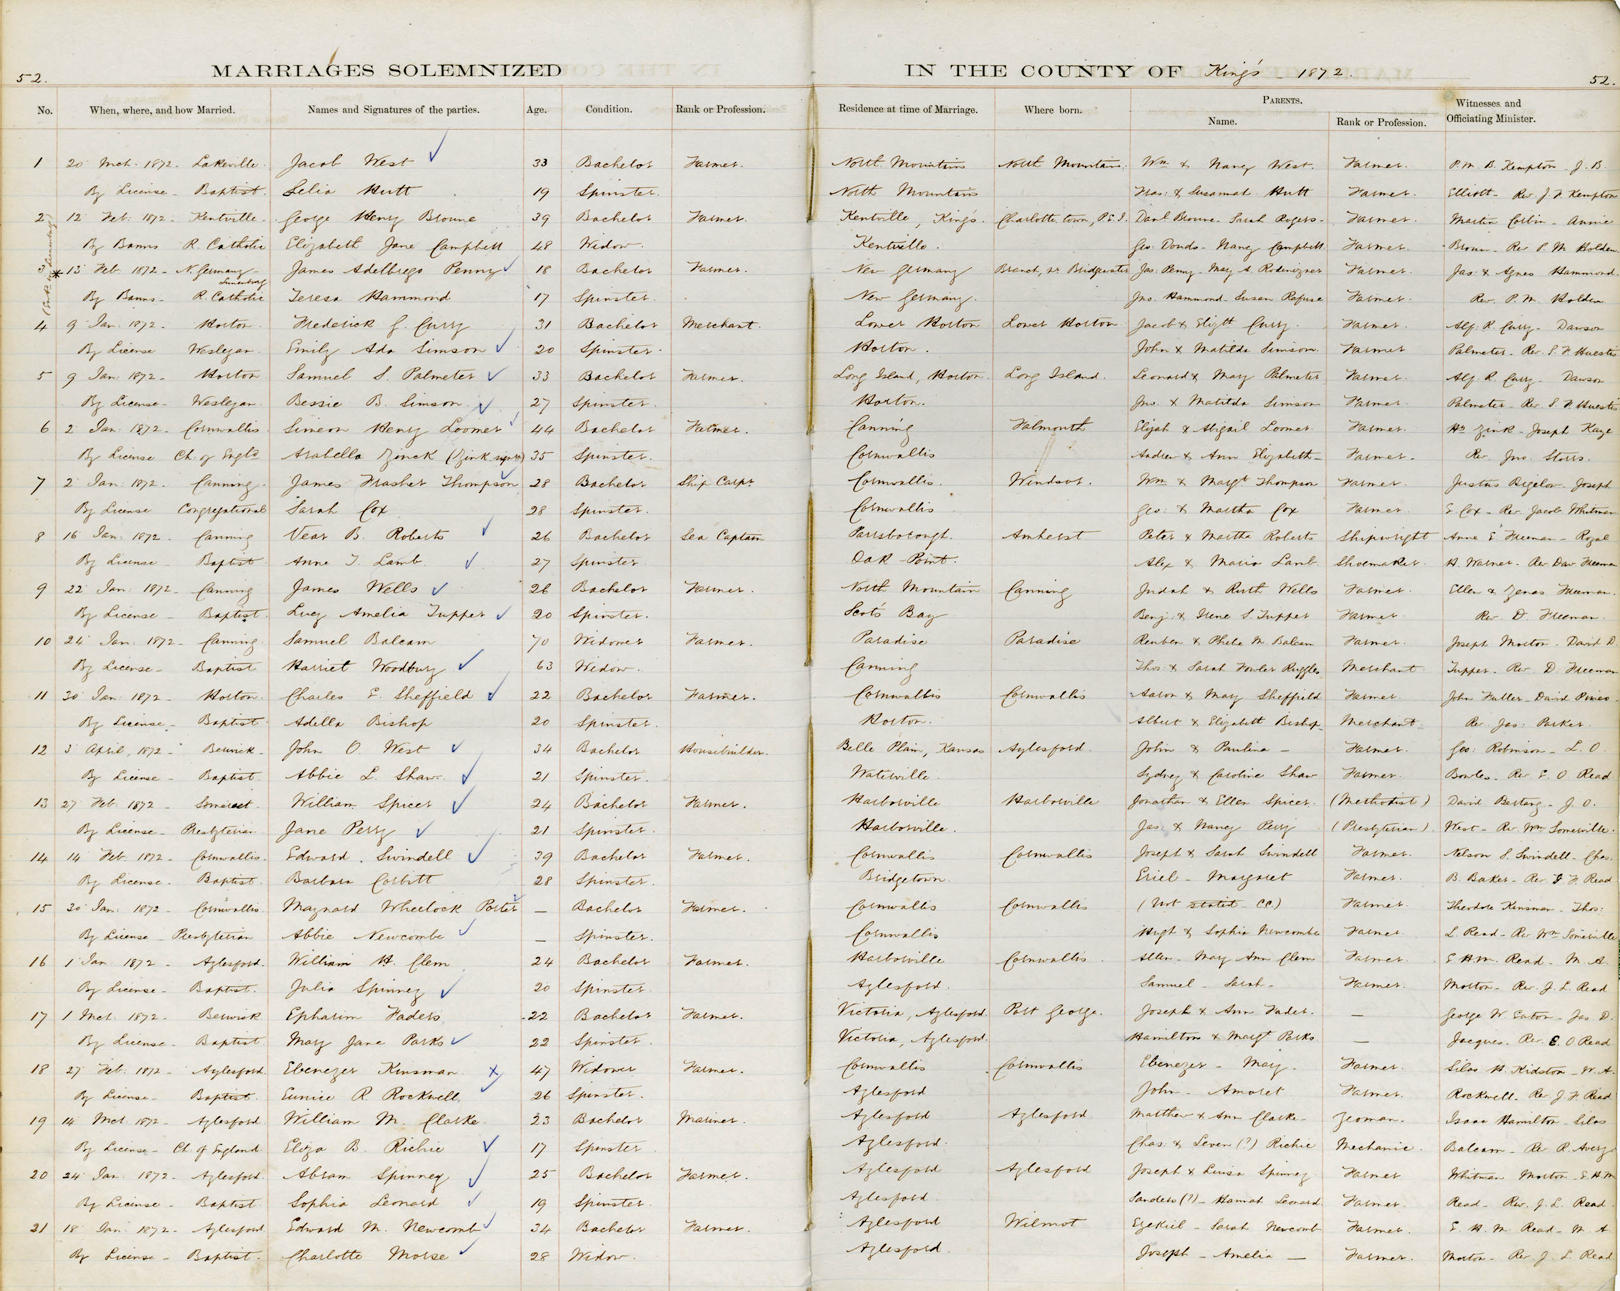 52.
MARRIAGES SOLEMNIZED IN THE COUNTY OF King's - 1872.
52.
PARENTS.
No. When, where, and how Married. Names and Signatures of the parties. Age. Condition. Rank or Profession. Residence at time of Marriage. Where born. Name. Rank or Profession. Witnesses and Officiating Minister.
1 20 Mch. 1872. Lakeville. Jacob West 33 Bachelor Farmer. North Mountain North Mountain. Wm & Nancy West. Farmer. P. M. B. Kempton. J. B.
By License - Baptist. Lelia Hutt 19 Spinster. North Mountain & Susannah Hutt Farmer. Elliott - Rev. J. F. Kempton
2 12 Feb. 1872 - Kentville. George Henry Browne 39 Bachelor Farmer. Kentville, Kings. Charlotte town, P.E.I. Danl Browne. Sarah Rogers. Farmer. Martin - Annie
By Banns R. Catholic Elizabeth Jane Campbell 48 Widow. Kentville. Geo. Nancy Campbell Farmer. Brown - Rev P. M. Holden
3 * 13 Feb 1872 - N. Germany Lunenburg James Penny 18 Bachelor Farmer. New Germany Branch, nr Bridgewater Jas. Penny - Mary A. Farmer. Jas. & Agnes Hammond
By Banns - R. Catholic Teresa Hammond 17 Spinster. New Germany. Jno. Hammond. Susan Farmer. Rev. P. M. Holden
4 9 Jan. 1872. Horton. Frederick G. Curry 31 Bachelor Merchant. Lower Horton Lower Horton Jacob & Elizth Curry. Farmer. Alf. R. Curry - Dawson
By License Wesleyan. Emily Ada Simson 20 Spinster. Horton. John & Matilda Simson Farmer Palmeter - Rev. S. F. Huestis
5 9 Jan. 1872. Horton Samuel S. Palmeter 33 Bachelor Farmer. Long Island, Horton. Long Island. Leonard & Mary Palmeter Farmer Alf R. Curry - Dawson
By License - Wesleyan Bessie B. Simson 27 Spinster. Horton. Jno. & Matilda Simson Farmer Palmeter - Rev. S. F. Huestis
6 2 Jan. 1872. Cornwallis. Simeon Henry Loomer 44 Bachelor Farmer. Canning Falmouth Elijah & Abigail Lomer Farmer. Zink - Joseph Kaye
By License Ch. of Engld Arabella Zinck (Zink signs) 35 Spinster. Cornwallis Andrew & Ann Elizabeth - Farmer - Rev. Jno. Storrs.
7 2 Jan. 1872. Canning. James Frasher Thompson 28 Bachelor Ship Carpr Cornwallis. Windsor. Wm & Margt Thompson Farmer. Justus Bigelow. Joseph
By License Congregational Sarah Cox 28 Spinster. Cornwallis Geo. & Martha Cox Farmer. E Cox - Rev. Jacob Whitman
8 16 Jan. 1872. Canning Vear B. Roberts 26 Bachelor Sea Captain Parrsborough. Amherst Peter & Martha Roberts Shipwright Anne E Freeman - Royal
By License Baptist Anne T. Lamb 27 Spinster. Oak Point. Alex & Maria Lamb Shoemaker. H. Warner. Rev Dav Freeman
9 22 Jan. 1872 - Canning James Wells 26 Bachelor Farmer. North Mountain Canning Judah & Ruth Wells Farmer. Ellen & Zenas Freeman
By License - Baptist. Lucy Amelia Tupper 20 Spinster. Scots Bay Benj. & Irene S. Tupper Farmer. Rev. D. Freeman.
10 24 Jan. 1872 - Canning Samuel Balcam 70 Widower Farmer. Paradise Paradise Reuben & Phebe M. Balcam Farmer. Joseph Morton. David D.
By License - Baptist Harriet Woodbury 63 Widow. Canning Thos. & Sarah Fowler Ruggles Merchant Tupper. Rev. D. Freeman
11 30 Jan. 1872. Horton. Charles E. Sheffield 22 Bachelor Farmer. Cornwallis Cornwallis Aaron & Mary Sheffield Farmer. John Fuller. David
By License - Baptist. Adella Bishop 20 Spinster. Horton. Albert & Elizabeth Bishop Merchant Rev. Jas. Parker.
12 3 April, 1872. Berwick. John O. West 34 Bachelor Housebuilder. Belle Plain, Kansas Aylesford. John & Paulina - Farmer. Geo. Robinson - L. O
By License - Baptist Abbie L. Shaw. 21 Spinster. Waterville. Sydney & Caroline Shaw Farmer. Bowles. Rev. E. O Read
13 27 Feb. 1872 - Somerset. William Spicer 24 Bachelor Farmer. Harborville Harborville Jonathan & Ellen Spicer. (Methodist) David - J. O.
By License - Presbyterian Jane Perry 21 Spinster. Harborville. Jas. & Nancy Perry (Presbyterian) West - Rev. Wm Somerville.
14 14 Feb. 1872 - Cornwallis. Edward. Swindell 39 Bachelor Farmer. Cornwallis Cornwallis Joseph & Sarah Swindell Farmer. Nelson S. Swindell - Chas.
By License. Baptist. Barbara Corbitt 28 Spinster. Bridgetown. Margaret Farmer. B. Baker - Rev. F Read
15 30 Jan. 1872 - Cornwallis Maynard Wheelock Porter - Bachelor Farmer. Cornwallis Cornwallis (Not stated CC) Farmer. Theodore Kinsman - Thos.
By License - Presbyterian Abbie Newcombe - Spinster. Cornwallis Hugh & Sophia Newcombe Farmer L. Read - Rev. Wm Somerville
16 1 Jan 1872 - Aylesford. William H. Clem 24 Bachelor Farmer. Harborville Cornwallis Allen - Mary Ann Clem Farmer. E. H. M. Read - M. A.
By License - Baptist. Julia Spinney 20 Spinster. Aylesford. Samuel - Sarah - Farmer. Morton - Rev. J. L. Read
17 1 Mch. 1872 - Berwick Epharim Faders 22 Bachelor Farmer. Victoria, Aylesford. Port George. Joseph & Ann Fader. - George W Eaton - Jas. D.
By License. Baptist Mary Jane Parks 22 Spinster. Victoria, Aylesford. Hamilton & Margt Parks - Jacques. Rev. E. O Read
18 27 Feb. 1872 - Aylesford Ebenezer Kinsman 47 Widower Farmer. Cornwallis Cornwallis Ebenezer - Mary. Farmer. Silas H. Kidston - W. A.
By License - Baptist. Eunice R Rockwell. 26 Spinster. Aylesford John - Amoret Farmer. Rockwell. Rev. J. F Read
19 14 Mch. 1872 - Aylesford William M. Clarke. 23 Bachelor Mariner. Aylesford Aylesford Matthew & Ann Clarke. Yeoman. Isaac Hamilton. Silas
By License - Ch. of England Eliza B. Richie 17 Spinster Aylesford. Chas. & Seven (?) Richie Mechanic. Balcam - Rev R. Avery
20 24 Jan. 1872 - Aylesford. Abram Spinney 25 Bachelor Farmer. Aylesford Aylesford Joseph & Luisa Spinney Farmer Whitman Morton - E. H. M
By License - Baptist Sophia Leonard 19 Spinster. Aylesford. Sanders (?) - Hannah Leonard Farmer. Read - Rev. J. L. Read.
21 18 Jan. 1872 - Aylesford Edward M. Newcomb 34 Bachelor Farmer. Aylesford Wilmot Ezekiel - Sarah Newcomb Farmer. E. H. M. Read - M. A
By License - Baptist. Charlotte Morse 28 Widow. Aylesford. Joseph - Amelia - Farmer. Morton - Rev. J. L. Read